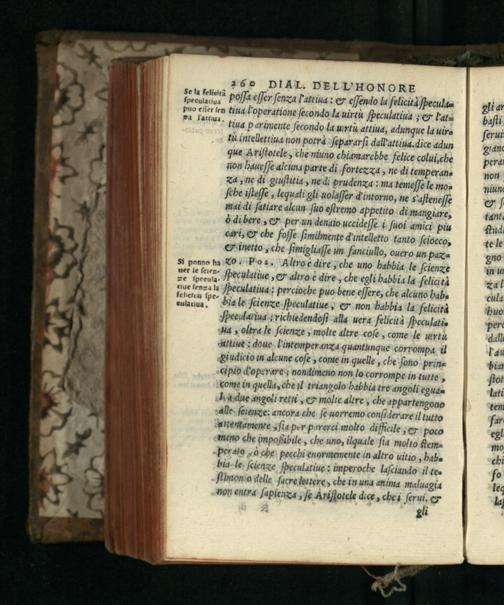 260 DIAL. DELL'HONORE
Se la felicità
speculatiua
puo esser sen
za l'attiua.
possa esser senza l'attiua: & essendo la felicità specula-
tiua l'operatione secondo la uirtù speculatiua; & l'at-
tiua parimente secondo la uirtù attiua, adunque la uir-
tù intellettiua non potrà separarsi dall'attiua. dice adun
que Aristotele, che niuno chiamarebbe felice colui, che
non hauesse alcuna parte di fortezza, ne di temperan-
za, ne di giustitia, ne di prudenza: ma temesse le mo-
sche istesse, lequali gli uolasser d'intorno, ne s'astenesse
mai di satiare alcun suo estremo appetito di mangiare,
ò di bere, & per un denaio uccidesse i suoi amici piu
cari, & che fosse similmente d'intelletto tanto sciocco,
& inetto, che simigliasse un fanciullo, ouero un paz-
Si ponno ha
uer le scien-
ze specula-
tiue senza la
felicità spe-
culatiua.
zo. Pos. Altro è dire, che uno habbia le scienze
speculatiue, & altro è dire, che egli habbia la felicità
speculatiua: percioche puo bene essere, che alcuno hab-
bia le scienze speculatiue, & non habbia la felicità
speculatiua; richiedendosi alla uera felicità speculati-
ua, oltra le scienze, molte altre cose, come le uirtù
attiue: doue l'intemperanza quantunque corrompa il
giudicio in alcune cose, come in quelle, che sono prin-
cipio d'operare; nondimeno non lo corrompe in tutte,
come in quella, che il triangolo habbia tre angoli egua-
li a due angoli retti, & molte altre, che appartengono
alle scienze: ancora che se uorremo considerare il tutto
attentamente, sia per parerci molto difficile, & poco
meno che impossibile, che uno, ilquale sia molto stem-
perato, ò che pecchi enormemente in altro uitio, hab-
bia le scienze speculatiue: imperoche lasciando il te-
stimonio delle sacre lettere, che in una anima maluagia
non entra sapienza, se Aristotele dice, che i serui, &
gli